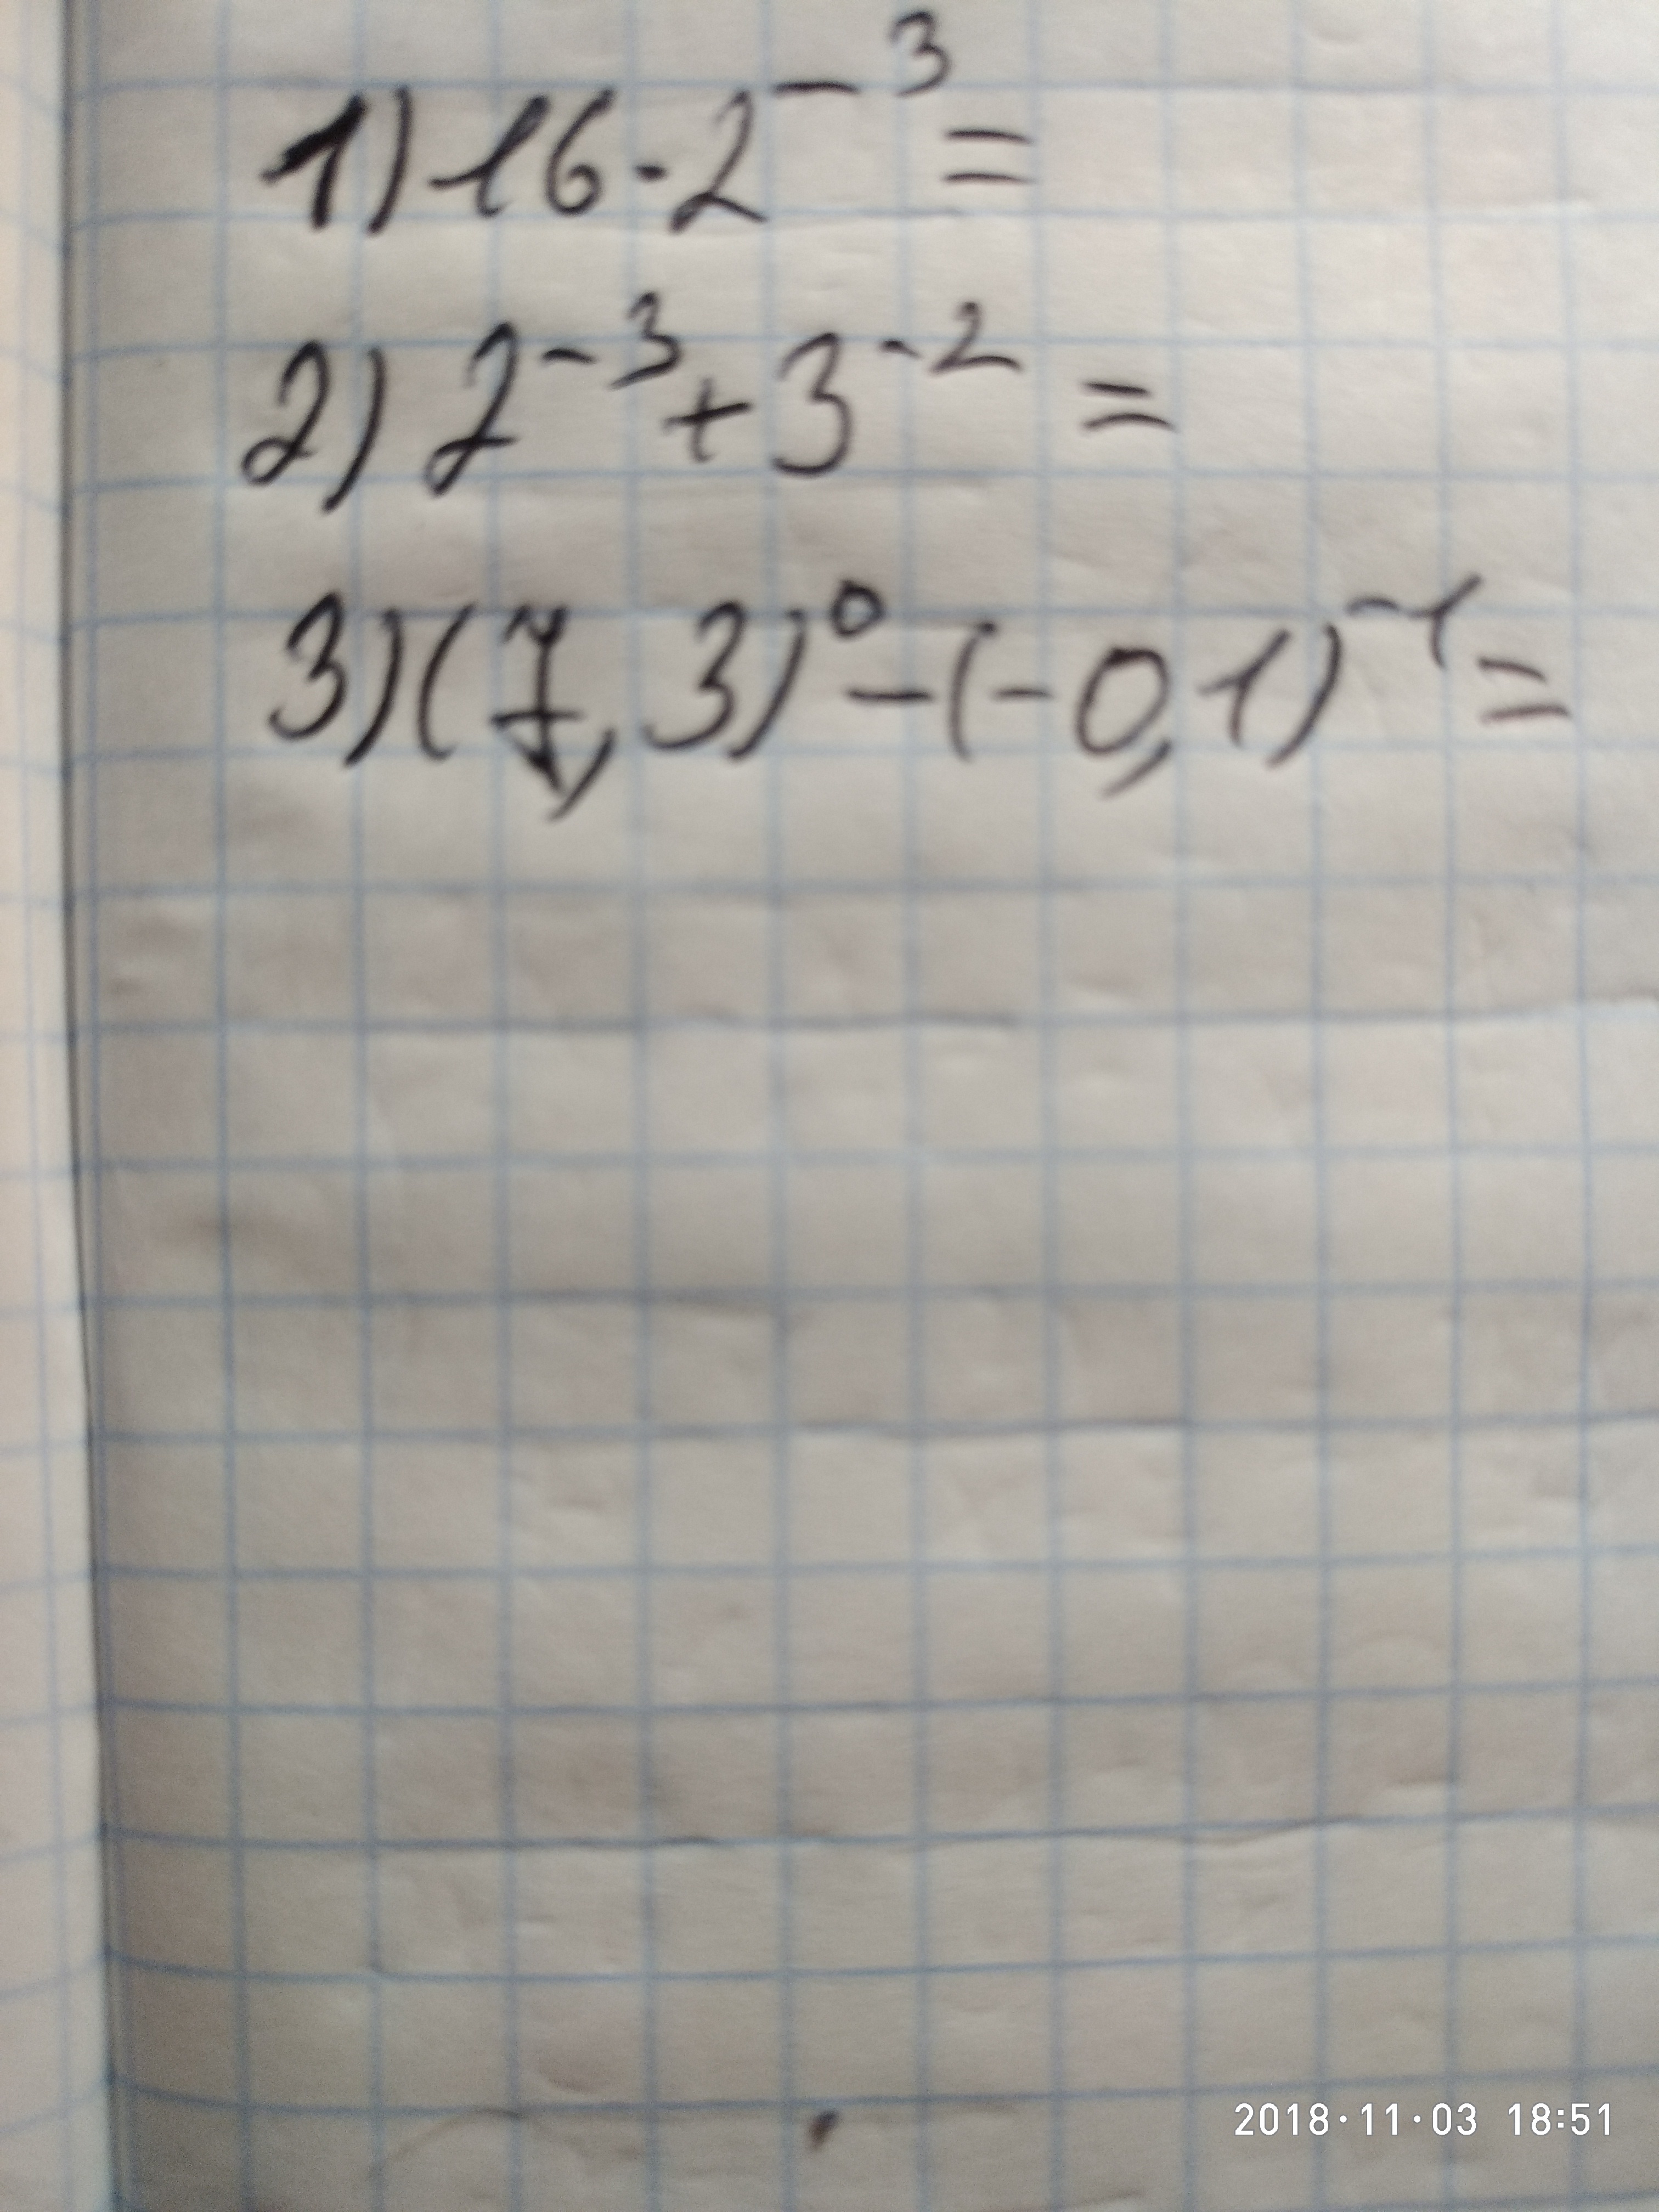 1) 16·2⁻³=
2) 2⁻³+3⁻²=
3) (7,3)⁰-(-0,1)⁻¹=
2018·11·03 18:51